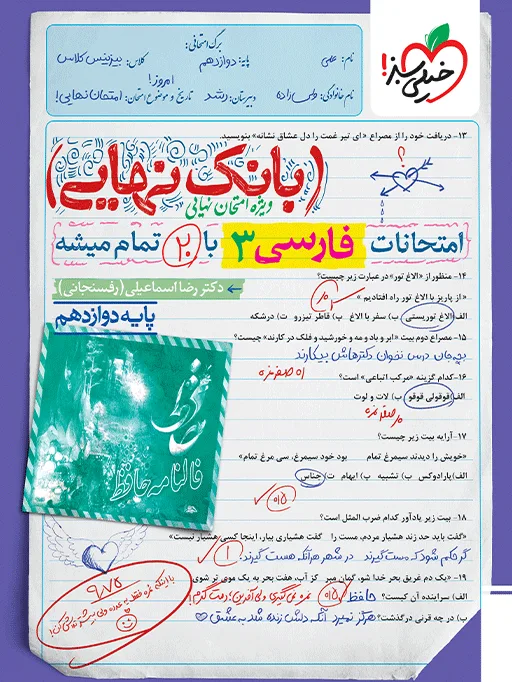 خیلی سبز!
برگ امتحانی:
نام: علی
پایه: دوازدهم
کلاس: بیزینس کلاس
نام خانوادگی: ولی زاده
دبیرستان: رشد
تاریخ و موضوع امتحان: امروز! امتحان نهایی!
۱۳- دریافت خود را از مصراع «ای تیر غمت را دل عشاق نشانه» بنویسید.
؟
(بانک نهایی)
ویژه امتحان نهایی
امتحانات فارسی ۳ با ۲۰ تمام میشه
← دکتر رضا اسماعیلی (رفسنجانی)
پایه دوازدهم
۱۴- منظور از «الاغ تور» در عبارت زیر چیست؟
« از پاریز با الاغ تور راه افتادیم »
الف) الاغ توریستی ب) سفر با الاغ پ) قاطر تیزرو ت) درشکه
۱۵- مصراع دوم بیت «ابر و باد و مه و خورشید و فلک در کارند» چیست؟
بچه‌جان درس نخوان دکترهاش بیکارند
۱۶- کدام گزینه «مرکب اتباعی» است؟
الف) قوقولی قوقو ب) لات و لوت
۱۷- آرایه بیت زیر چیست؟
«خویش را دیدند سیمرغ تمام بود خود سیمرغ، سی مرغ تمام»
الف) پارادوکس ب) تشبیه پ) ایهام ت) جناس
۰/۵
فالنامه حافظ
۱۸- بیت زیر یادآور کدام ضرب المثل است؟
«گفت باید حد زند هشیار مردم، مست را گفت هشیاری بیار، اینجا کسی هشیار نیست»
گر حکم شود که مست گیرند در شهر هرآنکه هست گیرند
۱
۱۹- «یک دم غریق بحر خدا شو، گمان مبر کز آب، هفت بحر به یک موی تر شوی»
الف) سراینده آن کیست؟ حافظ
۰/۵
ب) در چه قرنی درگذشت؟ هرگز نمیرد آنکه دلش زنده شد به عشق
۹/۷۵